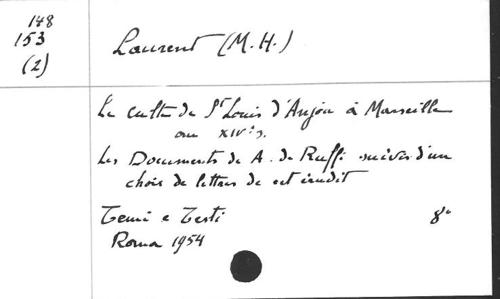 148
153
(2)
Laurent (M. H.)
Le culte de St Louis d'Anjou à Marseille
au XIVe s.
Les Documents de A. de Ruffi suivis d'un
choix de lettres de cet érudit
Temi e Testi 8°
Roma 1954